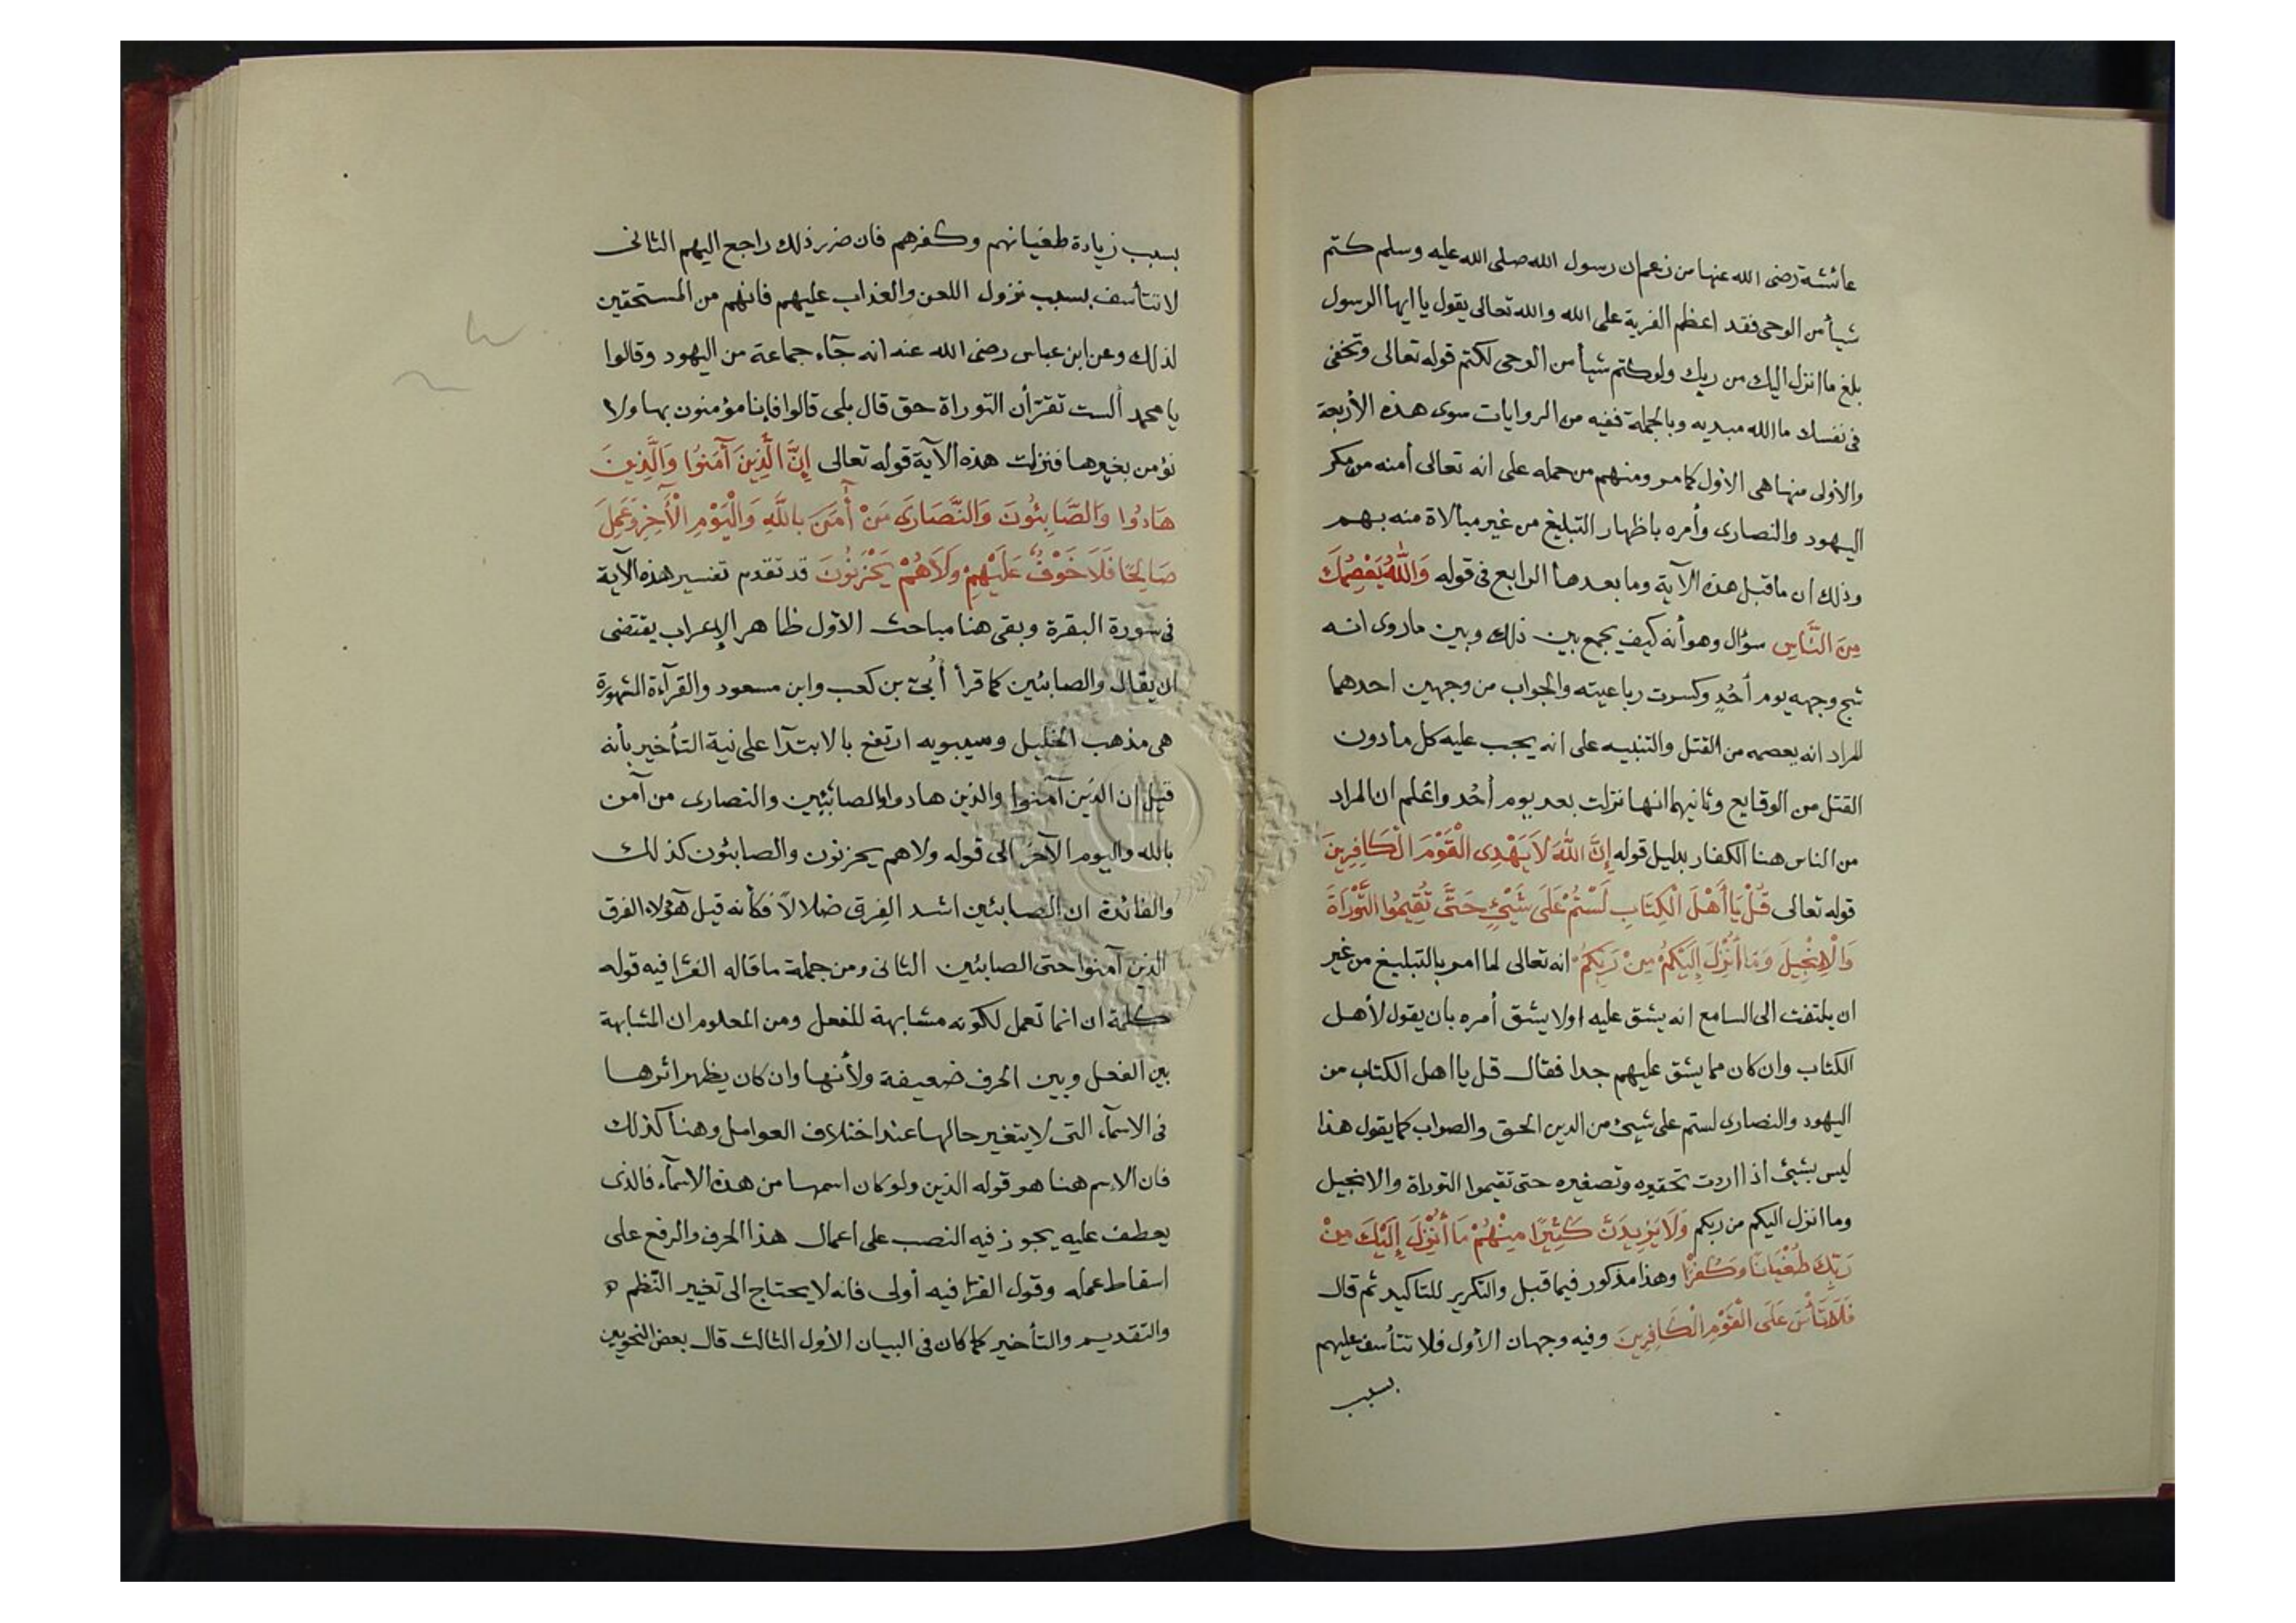 عائشة رضى الله عنها من زعم ان رسول الله صلى الله عليه وسلم كتم
شيأ من الوحى فقد اعظم الفرية على الله والله تعالى يقول يا ايها الرسول
بلغ ما انزل اليك من ربك ولو كتم شيأ من الوحى لكتم قوله تعالى وتخفى
فى نفسك ما الله مبديه وبالجملة ففيه من الروايات سوى هذه الأربعة
والأولى منها هى الأول كما مر ومنهم من حمله على انه تعالى أمنه من مكر
اليهود والنصارى وأمره باظهار التبليغ من غير مبالاة منه بهم
وذلك ان ما قبل هذه الآية وما بعدها الرابع فى قوله وَاللَّهُ يَعْصِمُكَ
مِنَ النَّاسِ سؤال وهو أنه كيف يجمع بين ذلك وبين ما روى انه
شج وجهه يوم أُحُدٍ وكسرت رباعيته والجواب من وجهين احدهما
المراد انه يعصمه من القتل والتنبيه على انه يجب عليه كل ما دون
القتل من الوقايع وثانيهما انها نزلت بعد يوم أُحُد واعلم ان المراد
من الناس هنا الكفار بدليل قوله إِنَّ اللَّهَ لَا يَهْدِى الْقَوْمَ الْكَافِرِينَ
قوله تعالى قُلْ يَا أَهْلَ الْكِتَابِ لَسْتُمْ عَلَى شَيْئٍ حَتَّى تُقِيمُوا التَّوْرَاةَ
وَالْاِنْجِيلَ وَمَا أُنْزِلَ إِلَيْكُمْ مِنْ رَبِّكُمْ انه تعالى لما امر بالتبليغ من غير
ان يلتفت الى السامع انه يشق عليه اولا يشق أمره بان يقول لأهل
الكتاب وان كان مما يشق عليهم جدا فقال قل يا اهل الكتاب من
اليهود والنصارى لستم على شيئ من الدين الحق والصواب كما يقول هذا
ليس بشيئ اذا اردت تحقيره وتصغيره حتى تقيموا التوراة والانجيل
وما انزل اليكم من ربكم وَلَا يَزِيدَنَّ كَثِيرًا مِنْهُمْ مَا أُنْزِلَ إِلَيْكَ مِنْ
رَبِّكَ طُغْيَانًا وَكُفْرًا وهذا مذكور فيما قبل والتكرير للتاكيد ثم قال
فَلَا تَأْسَ عَلَى الْقَوْمِ الْكَافِرِينَ وفيه وجهان الأول فلا تتأسف عليهم
بسبب
بسبب زيادة طغيانهم وكفرهم فان ضرر ذلك راجع اليهم الثانى
لا تتأسف بسبب نزول اللعن والعذاب عليهم فانهم من المستحقين
لذلك وعن ابن عباس رضى الله عنه انه جآء جماعة من اليهود وقالوا
يا محمد ألست تقرّ أن التوراة حق قال بلى قالوا فإنا مؤمنون بها ولا
نؤمن بغيرها فنزلت هذه الآية قوله تعالى إِنَّ الَّذِينَ آمَنُوا وَالَّذِينَ
هَادُوا وَالصَّابِئُونَ وَالنَّصَارَى مَنْ أٓمَنَ بِاللَّهِ وَالْيَوْمِ الْأٓخِرِ وَعَمِلَ
صَالِحًا فَلَا خَوْفٌ عَلَيْهِمْ وَلَا هُمْ يَحْزَنُونَ قد تقدم تفسير هذه الآية
فى سورة البقرة وبقى هنا مباحث الأول ظاهر الإعراب يقتضى
ان يقال والصابئين كما قرأ أُبىّ بن كعب وابن مسعود والقرآءة المشهورة
هى مذهب الخليل وسيبويه ارتفع بالابتدآ على نية التأخير بأنه
قيل ان الذين آمنوا والذين هادوا والصابئين والنصارى من آمن
بالله واليوم الآخر الى قوله ولاهم يحزنون والصابئون كذلك
والفائدة ان الصابئين اشد الفِرق ضلالاً فكأنه قيل هؤلاء الفرق
الذين آمنوا حتى الصابئين الثانى ومن جملة ما قاله الفرّا فيه قوله
كلمة ان انما تعمل لكونه مشابهة للفعل ومن المعلوم ان المشابهة
بين الفعل وبين الحرف ضعيفة ولأنها وان كان يظهر اثرها
فى الاسمآء التى لا يتغير حالها عند اختلاف العوامل وهنا كذلك
فان الإسم هنا هو قوله الذين ولو كان اسمها من هذه الاسمآء فالذى
يعطف عليه يجوز فيه النصب على اعمال هذا الحرف والرفع على
اسقاط عمله وقول الفرّا فيه أولى فانه لا يحتاج الى تغيير النّظم
والتقديم والتأخير كما كان فى البيان الأول الثالث قال بعض النحويين